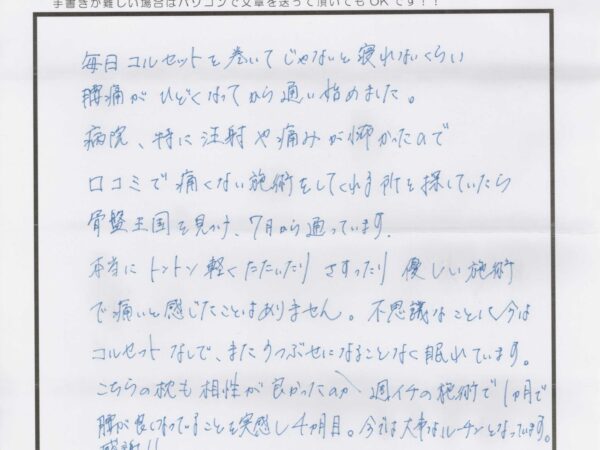 手書きが難しい場合はパソコンで文章を送って頂いてもOKです！！
毎日コルセットを巻いてじゃないと寝れないくらい
腰痛がひどくなってから通い始めました。
病院、特に注射や痛みが怖かったので
口コミで痛くない施術をしてくれる所を探していたら
骨盤王国を見つけ、7月から通っています。
本当にトントン軽くたたいたりさすったり優しい施術
で痛いと感じたことはありません。不思議なことに今は
コルセットなしで、またうつぶせになることなく眠れています。
こちらの枕も相性が良かったのか、週イチの施術で1ヵ月で
腰が良くなっていることを実感し4ヵ月目。今では大事なルーチンとなっています。
感謝!!